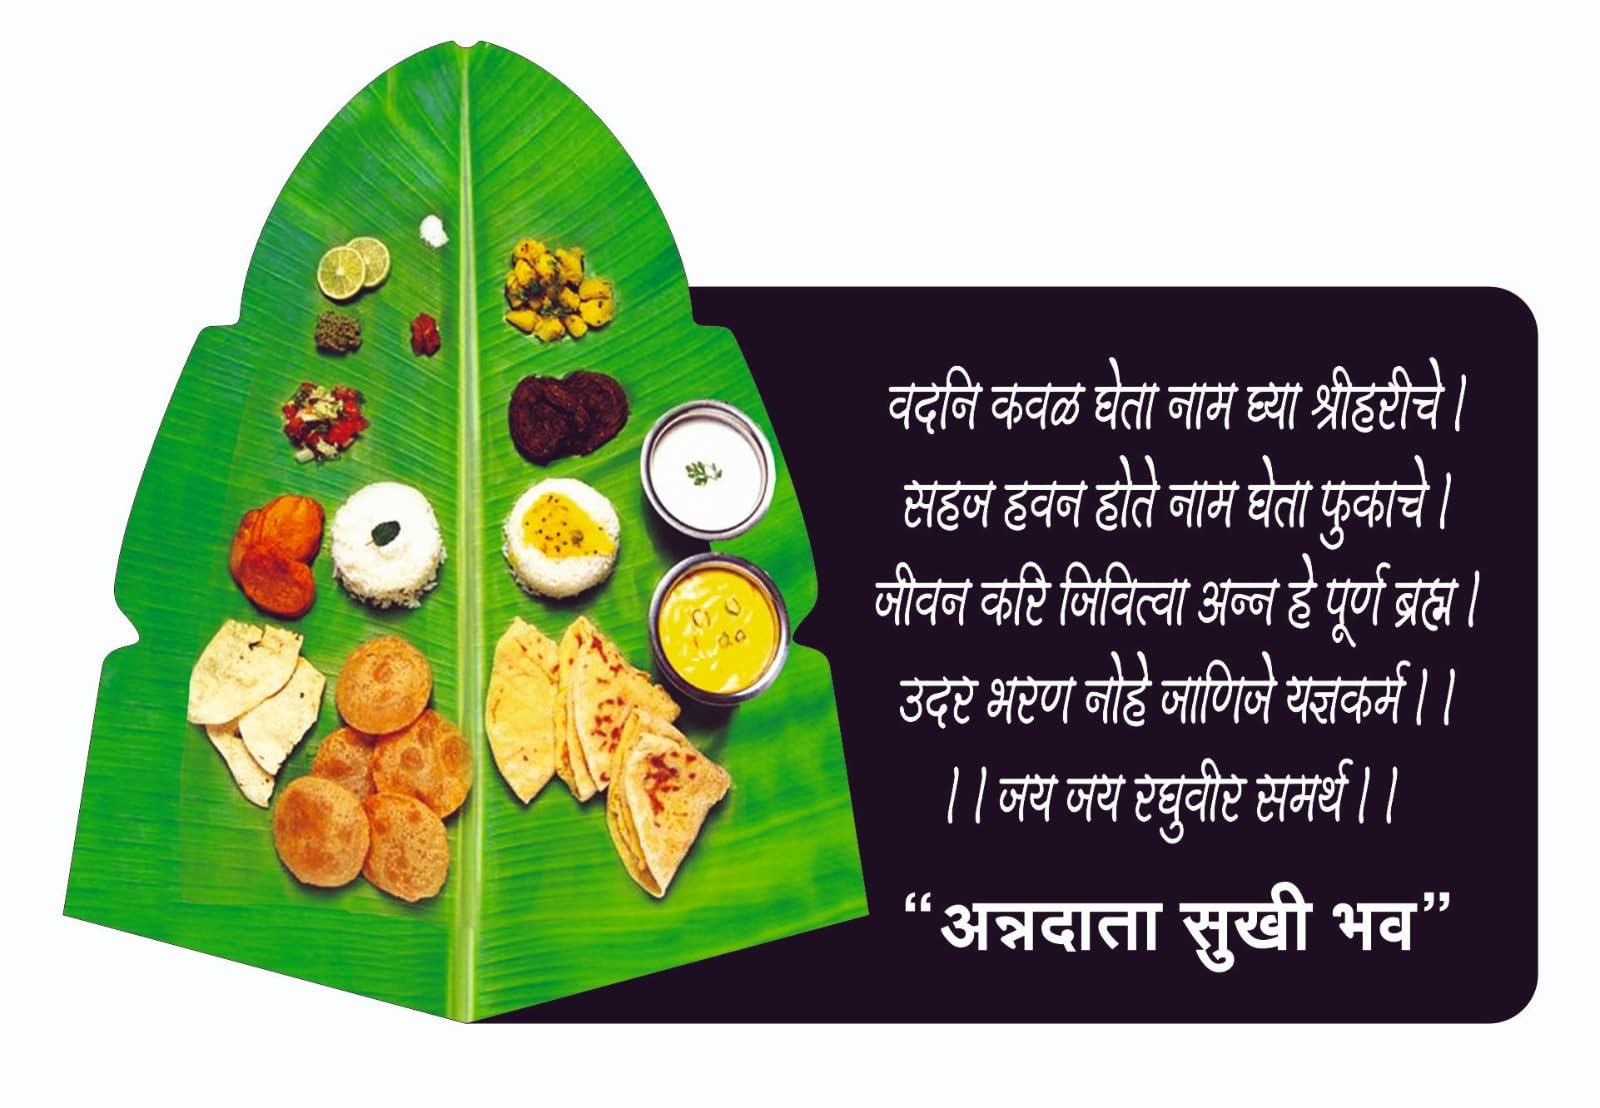 वदनि कवळ घेता नाम घ्या श्रीहरीचे।
सहज हवन होते नाम घेता फुकाचे।
जीवन करि जिवित्वा अन्न हे पूर्ण ब्रह्म।
उदर भरण नोहे जाणिजे यज्ञकर्म।।
।।जय जय रघुवीर समर्थ।।
“अन्नदाता सुखी भव”